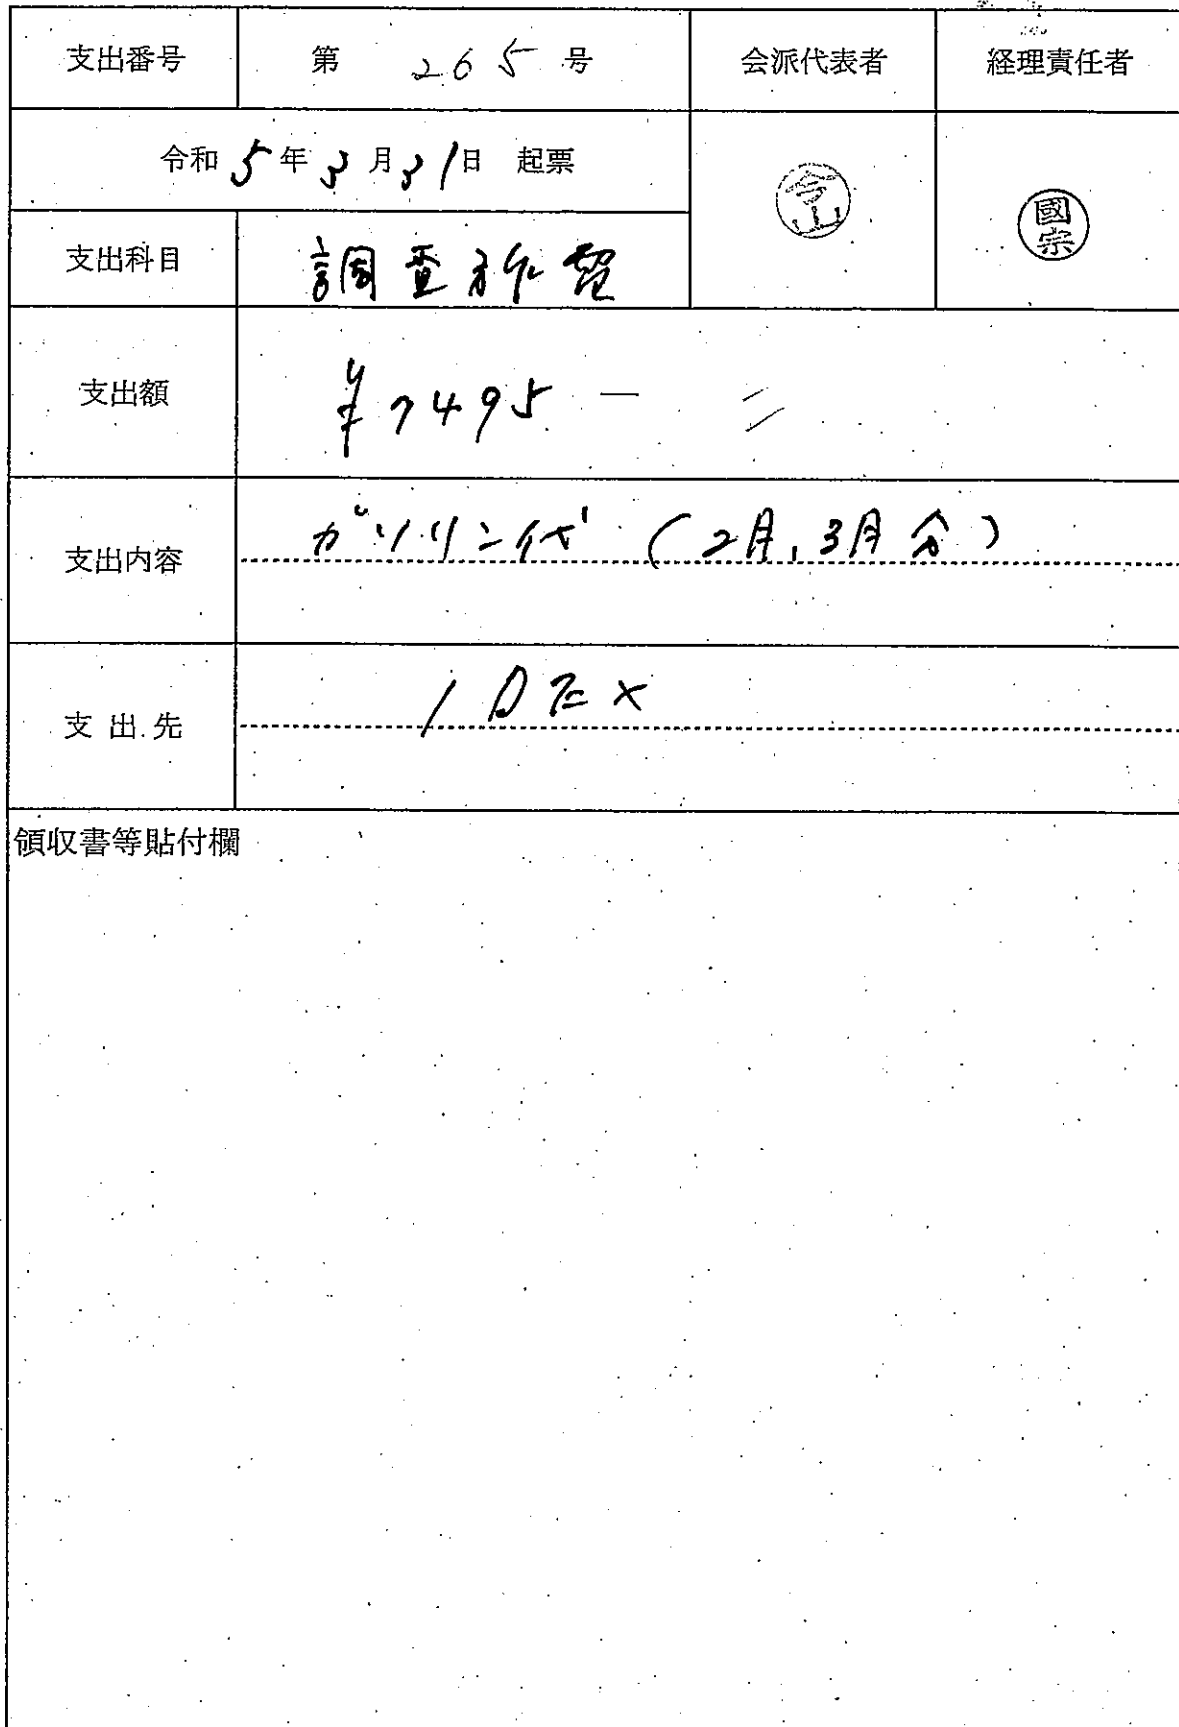 支出番号 第 265 号 会派代表者 経理責任者
令和 5 年 3 月 31 日 起票
今山
國宗
支出科目 調査旅費
支出額 ¥7495 —
支出内容 ガソリン代 (2月,3月分)
支出先
領収書等貼付欄